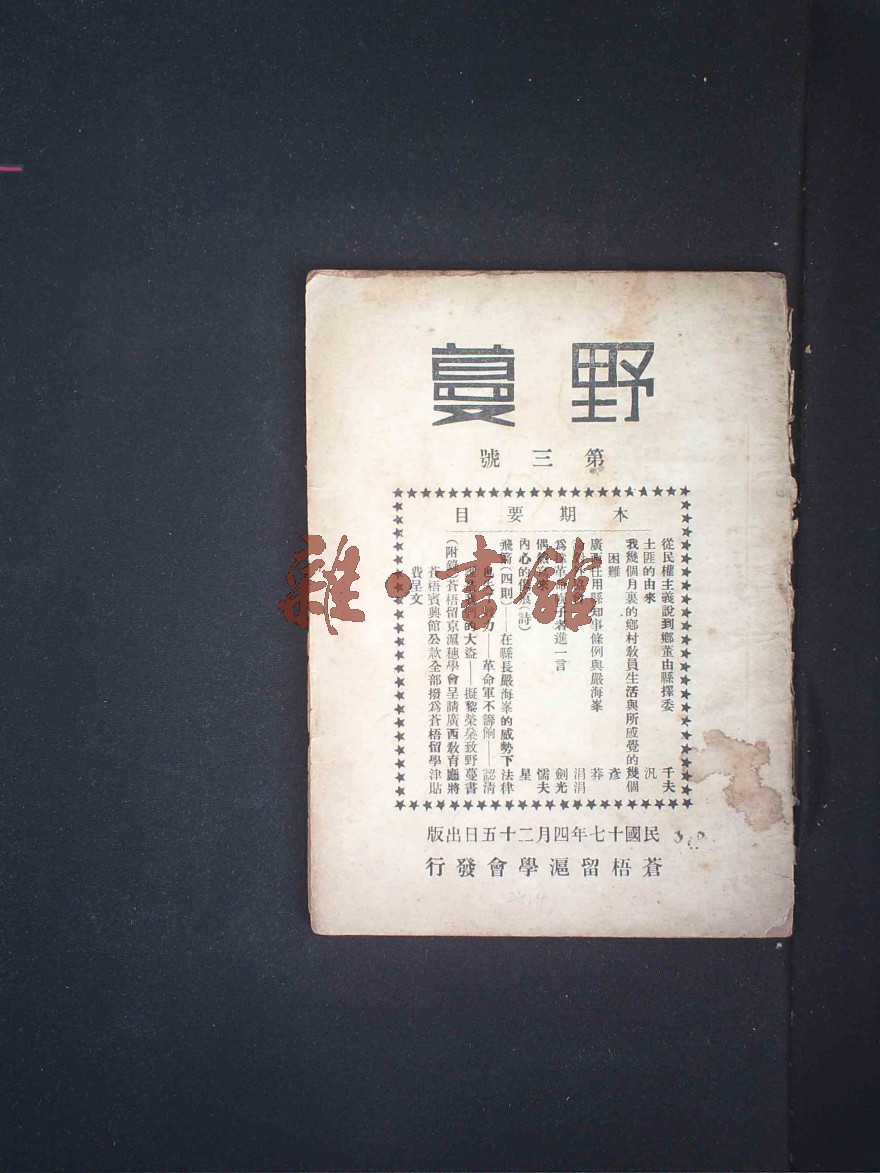 野蔓
第三號
本期要目
從民權主義說到鄉董由縣擇委 千夫
土匪的由來 汎
我幾個月裏的鄉村教員生活與所感覺的幾個
困難 彥
廣西任用縣知事條例與嚴海峯 莽
涓涓
爲 革命 者進一言 劍光
偶 來 懦夫
內心的傷痕(詩) 星
飛箭(四則)——在縣長嚴海峯的威勢下法律
也失 力——革命軍不籌餉——認清
我們的大盜——擬黎榮燊致野蔓書
(附錄)蒼梧留京滬穗學會呈請廣西教育廳將
蒼梧賓興館公款全部撥爲蒼梧留學津貼
費呈文
民國十七年四月二十五日出版
蒼梧留滬學會發行
雜·書館